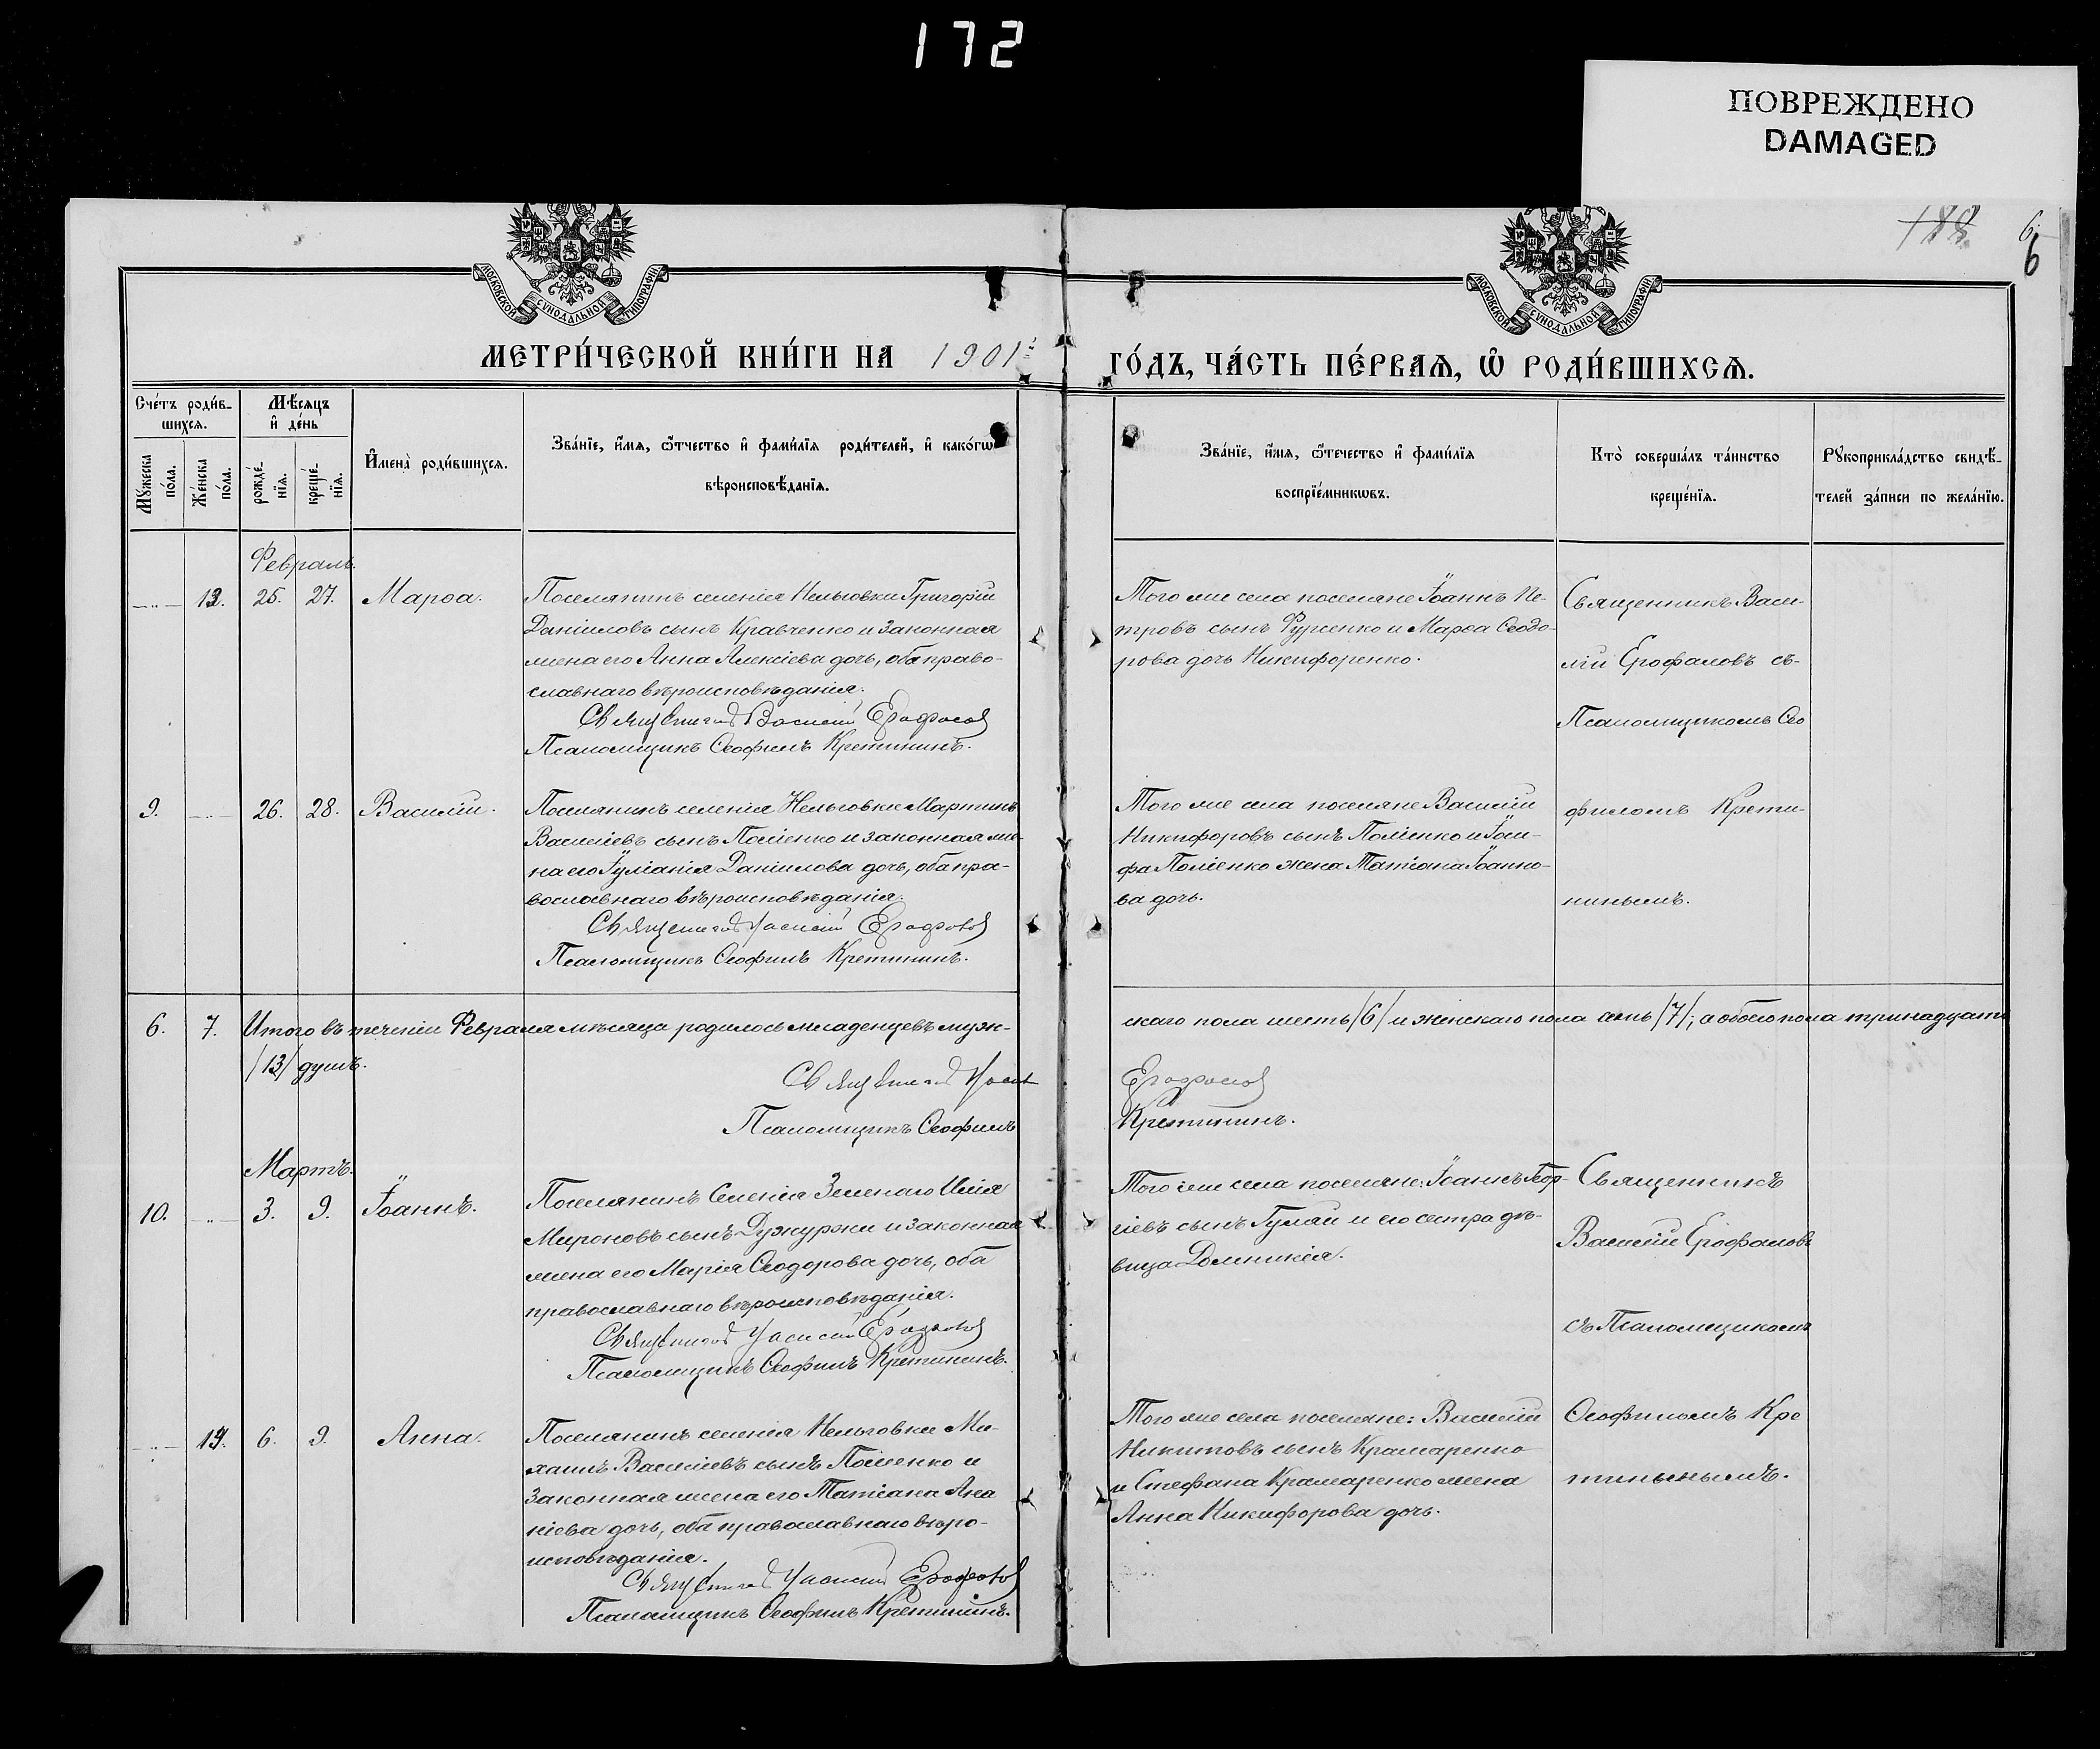 172
ПОВРЕЖДЕНО
DAMAGED
188
6.
6
МОСКОВСКОЙ СѴНОДАЛЬНОЙ ТИПОГРАФІИ
МОСКОВСКОЙ СѴНОДАЛЬНОЙ ТИПОГРАФІИ
МЕТРИ́ЧЕСКОЙ КНИ́ГИ НА 1901й
ГО́ДЪ, ЧА́СТЬ ПЕ́РВАѦ, Ѽ РОДИ́ВШИХСѦ.
Сче́тъ роди́в-
шихсѧ.
Мѣ́сѧцъ
и҆ де́нь
Мꙋ́жеска
по́ла.
Же́нска
по́ла.
рожде́-
нїѧ.
креще́-
нїѧ.
И҆мена̀ роди́вшихсѧ.
Зва́нїе, и҆́мѧ, ѻ҆́тчество и҆ фами́лїѧ роди́телей, и҆ како́гѡ
вѣроисповѣ́данїѧ.
Зва́нїе, и҆́мѧ, ѻ҆́течество и҆ фами́лїѧ
воспрїе́мникѡвъ.
Кто̀ соверша́лъ та́инство
креще́нїѧ.
Рꙋкоприкла́дство свидѣ́-
телей за́писи по жела́нїю.
Февраль.
13. 25. 27. Марѳа.
Поселянинъ селенія Нельговки Григорій
Даніиловъ сынъ Кравченко и законная
жена его Анна Алексіева дочь, оба право-
славнаго вѣроисповѣданія.
Священникъ Василій Ерофаловъ
Псаломщикъ Ѳеофилъ Кретининъ.
Того же села поселяне Іоаннъ Пе-
тровъ сынъ и Марѳа Ѳеодо-
рова дочь Никифоренко.
Священникъ Васи-
лій Ерофаловъ съ
Псаломщикомъ Ѳео
9. 26. 28. Василій.
Поселянинъ селенія Нельговки Мартинъ
Василіевъ сынъ Поліенко и законная же-
на его Іуліанія Даніилова дочь, оба пра-
вославнаго вѣроисповѣданія.
Священникъ Василій Ерофаловъ
Псаломщикъ Ѳеофилъ Кретининъ.
Того же села поселяне Василій
Никифоровъ сынъ Поліенко и Іоси-
фа Поліенко жена Татіана Іоанно-
ва дочь.
филомъ Крети-
нинымъ.
6. 7. Итого въ теченіи Февраля мѣсяца родилось младенцевъ муж-
скаго пола шесть /6/ и женскаго пола семь /7/; а обоего пола тринадцать
/13/ душъ.
Священникъ Васил
Ерофаловъ
Псаломщикъ Ѳеофилъ
Кретининъ.
Мартъ.
10. 3. 9. Іоаннъ.
Поселянинъ Селенія Зеленаго Илія
Мироновъ сынъ и законная
жена его Марія Ѳеодорова дочь, оба
православнаго вѣроисповѣданія.
Священникъ Василій Ерофаловъ
Псаломщикъ Ѳеофилъ Кретининъ.
Того же села поселяне: Іоаннъ Геор-
гіевъ сынъ Гулай и его сестра дѣ-
вица Домникія.
Священникъ
Василій Ерофаловъ
съ Псаломщикомъ
14. 6. 9. Анна.
Поселянинъ селенія Нельговки Ми-
хаилъ Василіевъ сынъ Поліенко и
законная жена его Татіана Ана
ніева дочь, оба православнаго вѣро-
исповѣданія.
Священникъ Василій Ерофаловъ
Псаломщикъ Ѳеофилъ Кретининъ.
Того же села поселяне: Василій
Никитовъ сынъ Крамаренко
и Стефана Крамаренко жена
Анна Никифорова дочь.
Ѳеофиломъ Кре
тинынымъ.